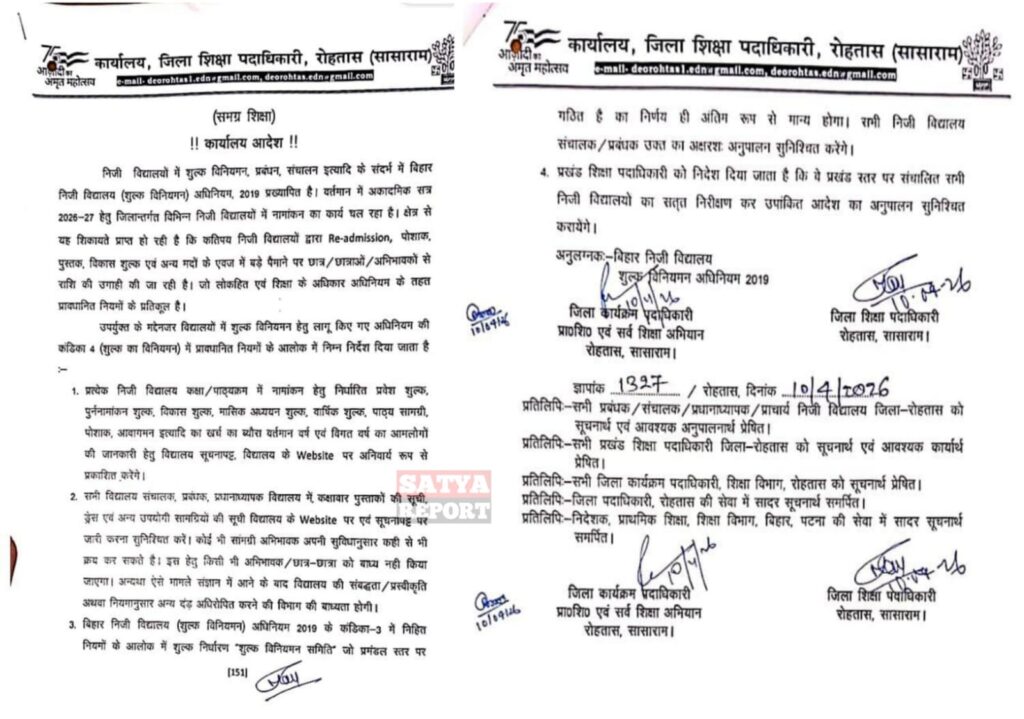 75
आज़ादी का
अमृत महोत्सव
कार्यालय, जिला शिक्षा पदाधिकारी, रोहतास (सासाराम)
e-mail- deorohtas1.edn@gmail.com, deorohtas.edn@gmail.com
(समग्र शिक्षा)
!! कार्यालय आदेश !!
निजी विद्यालयों में शुल्क विनियमन, प्रबंधन, संचालन इत्यादि के संदर्भ में बिहार
निजी विद्यालय (शुल्क विनियमन) अधिनियम, 2019 प्रख्यापित है। वर्तमान में अकादमिक सत्र
2026-27 हेतु जिलान्तर्गत विभिन्न निजी विद्यालयों में नामांकन का कार्य चल रहा है। क्षेत्र से
यह शिकायते प्राप्त हो रही है कि कतिपय निजी विद्यालयों द्वारा Re-admission, पोशाक,
पुस्तक, विकास शुल्क एवं अन्य मदों के एवज में बड़े पैमाने पर छात्र/छात्राओं/अभिभावकों से
राशि की उगाही की जा रही है। जो लोकहित एवं शिक्षा के अधिकार अधिनियम के तहत
प्रावधानित नियमों के प्रतिकूल है।
उपर्युक्त के मद्देनजर विद्यालयों में शुल्क विनियमन हेतु लागू किए गए अधिनियम की
कंडिका 4 (शुल्क का विनियमन) में प्रावधानित नियमों के आलोक में निम्न निर्देश दिया जाता है
:-
1. प्रत्येक निजी विद्यालय कक्षा/पाठ्यक्रम में नामांकन हेतु निर्धारित प्रवेश शुल्क,
पुर्ननामांकन शुल्क, विकास शुल्क, मासिक अध्ययन शुल्क, वार्षिक शुल्क, पाठ्य सामग्री,
पोशाक, आवागमन इत्यादि का खर्च का ब्यौरा वर्तमान वर्ष एवं विगत वर्ष का आमलोगों
की जानकारी हेतु विद्यालय सूचनापट्ट, विद्यालय के Website पर अनिवार्य रूप से
प्रकाशित करेंगे।
2. सभी विद्यालय संचालक, प्रबंधक, प्रधानाध्यापक विद्यालय में कक्षावार पुस्तकों की सूची,
ड्रेस एवं अन्य उपयोगी सामग्रियों की सूची विद्यालय के Website पर एवं सूचनापट्ट पर
जारी करना सुनिश्चित करें। कोई भी सांमग्री अभिभावक अपनी सुविधानुसार कही से भी
क्रय कर सकते है। इस हेतु किसी भी अभिभावक/छात्र-छात्रा को बाध्य नही किया
जाएगा। अन्यथा ऐसे मामले संज्ञान में आने के बाद विद्यालय की संबद्धता/प्रस्वीकृति
अथवा नियमानुसार अन्य दंड़ अधिरोपित करने की विभाग की बाध्यता होगी।
3. बिहार निजी विद्यालय (शुल्क विनियमन) अधिनियम 2019 के कंडिका-3 में निहित
नियमों के आलोक में शुल्क निर्धारण "शुल्क विनियमन समिति" जो प्रमंडल स्तर पर
[151]
SATYA
REPORT
75
आज़ादी का
अमृत महोत्सव
कार्यालय, जिला शिक्षा पदाधिकारी, रोहतास (सासाराम)
e-mail- deorohtas1.edn@gmail.com, deorohtas.edn@gmail.com
गठित है का निर्णय ही अंतिम रूप से मान्य होगा। सभी निजी विद्यालय
संचालक/प्रबंधक उक्त का अक्षरशः अनुपालन सुनिश्चित करेंगे।
4. प्रखंड शिक्षा पदाधिकारी को निदेश दिया जाता है कि वे प्रखंड स्तर पर संचालित सभी
निजी विद्यालयो का सतृत निरीक्षण कर उपांकित आदेश का अनुपालन सुनिश्चित
करायेंगे।
अनुलग्नकः-बिहार निजी विद्यालय
शुल्क विनियमन अधिनियम 2019
10/4/26
10.04.26
10/04/26
जिला कार्यक्रम पदाधिकारी
प्रा०शि० एवं सर्व शिक्षा अभियान
रोहतास, सासाराम।
जिला शिक्षा पदाधिकारी
रोहतास, सासाराम।
ज्ञापांक 1327 / रोहतास, दिनांक 10/4/2026
प्रतिलिपिः-सभी प्रबंधक/संचालक/प्रधानाध्यापक/प्राचार्य निजी विद्यालय जिला-रोहतास को
सूचनार्थ एवं आवश्यक अनुपालनार्थ प्रेषित।
प्रतिलिपिः-सभी प्रखंड शिक्षा पदाधिकारी जिला-रोहतास को सूचनार्थ एवं आवश्यक कार्यार्थ
प्रेषित।
प्रतिलिपिः-सभी जिला कार्यक्रम पदाधिकारी, शिक्षा विभाग, रोहतास को सूचनार्थ प्रेषित।
प्रतिलिपिः-जिला पदाधिकारी, रोहतास की सेवा में सादर सूचनार्थ समर्पित।
प्रतिलिपिः-निदेशक, प्राथमिक शिक्षा, शिक्षा विभाग, बिहार, पटना की सेवा में सादर सूचनार्थ
समर्पित।
10/4/26
10.04.26
10/04/26
जिला कार्यक्रम पदाधिकारी
प्रा०शि० एवं सर्व शिक्षा अभियान
रोहतास, सासाराम।
जिला शिक्षा पदाधिकारी
रोहतास, सासाराम।